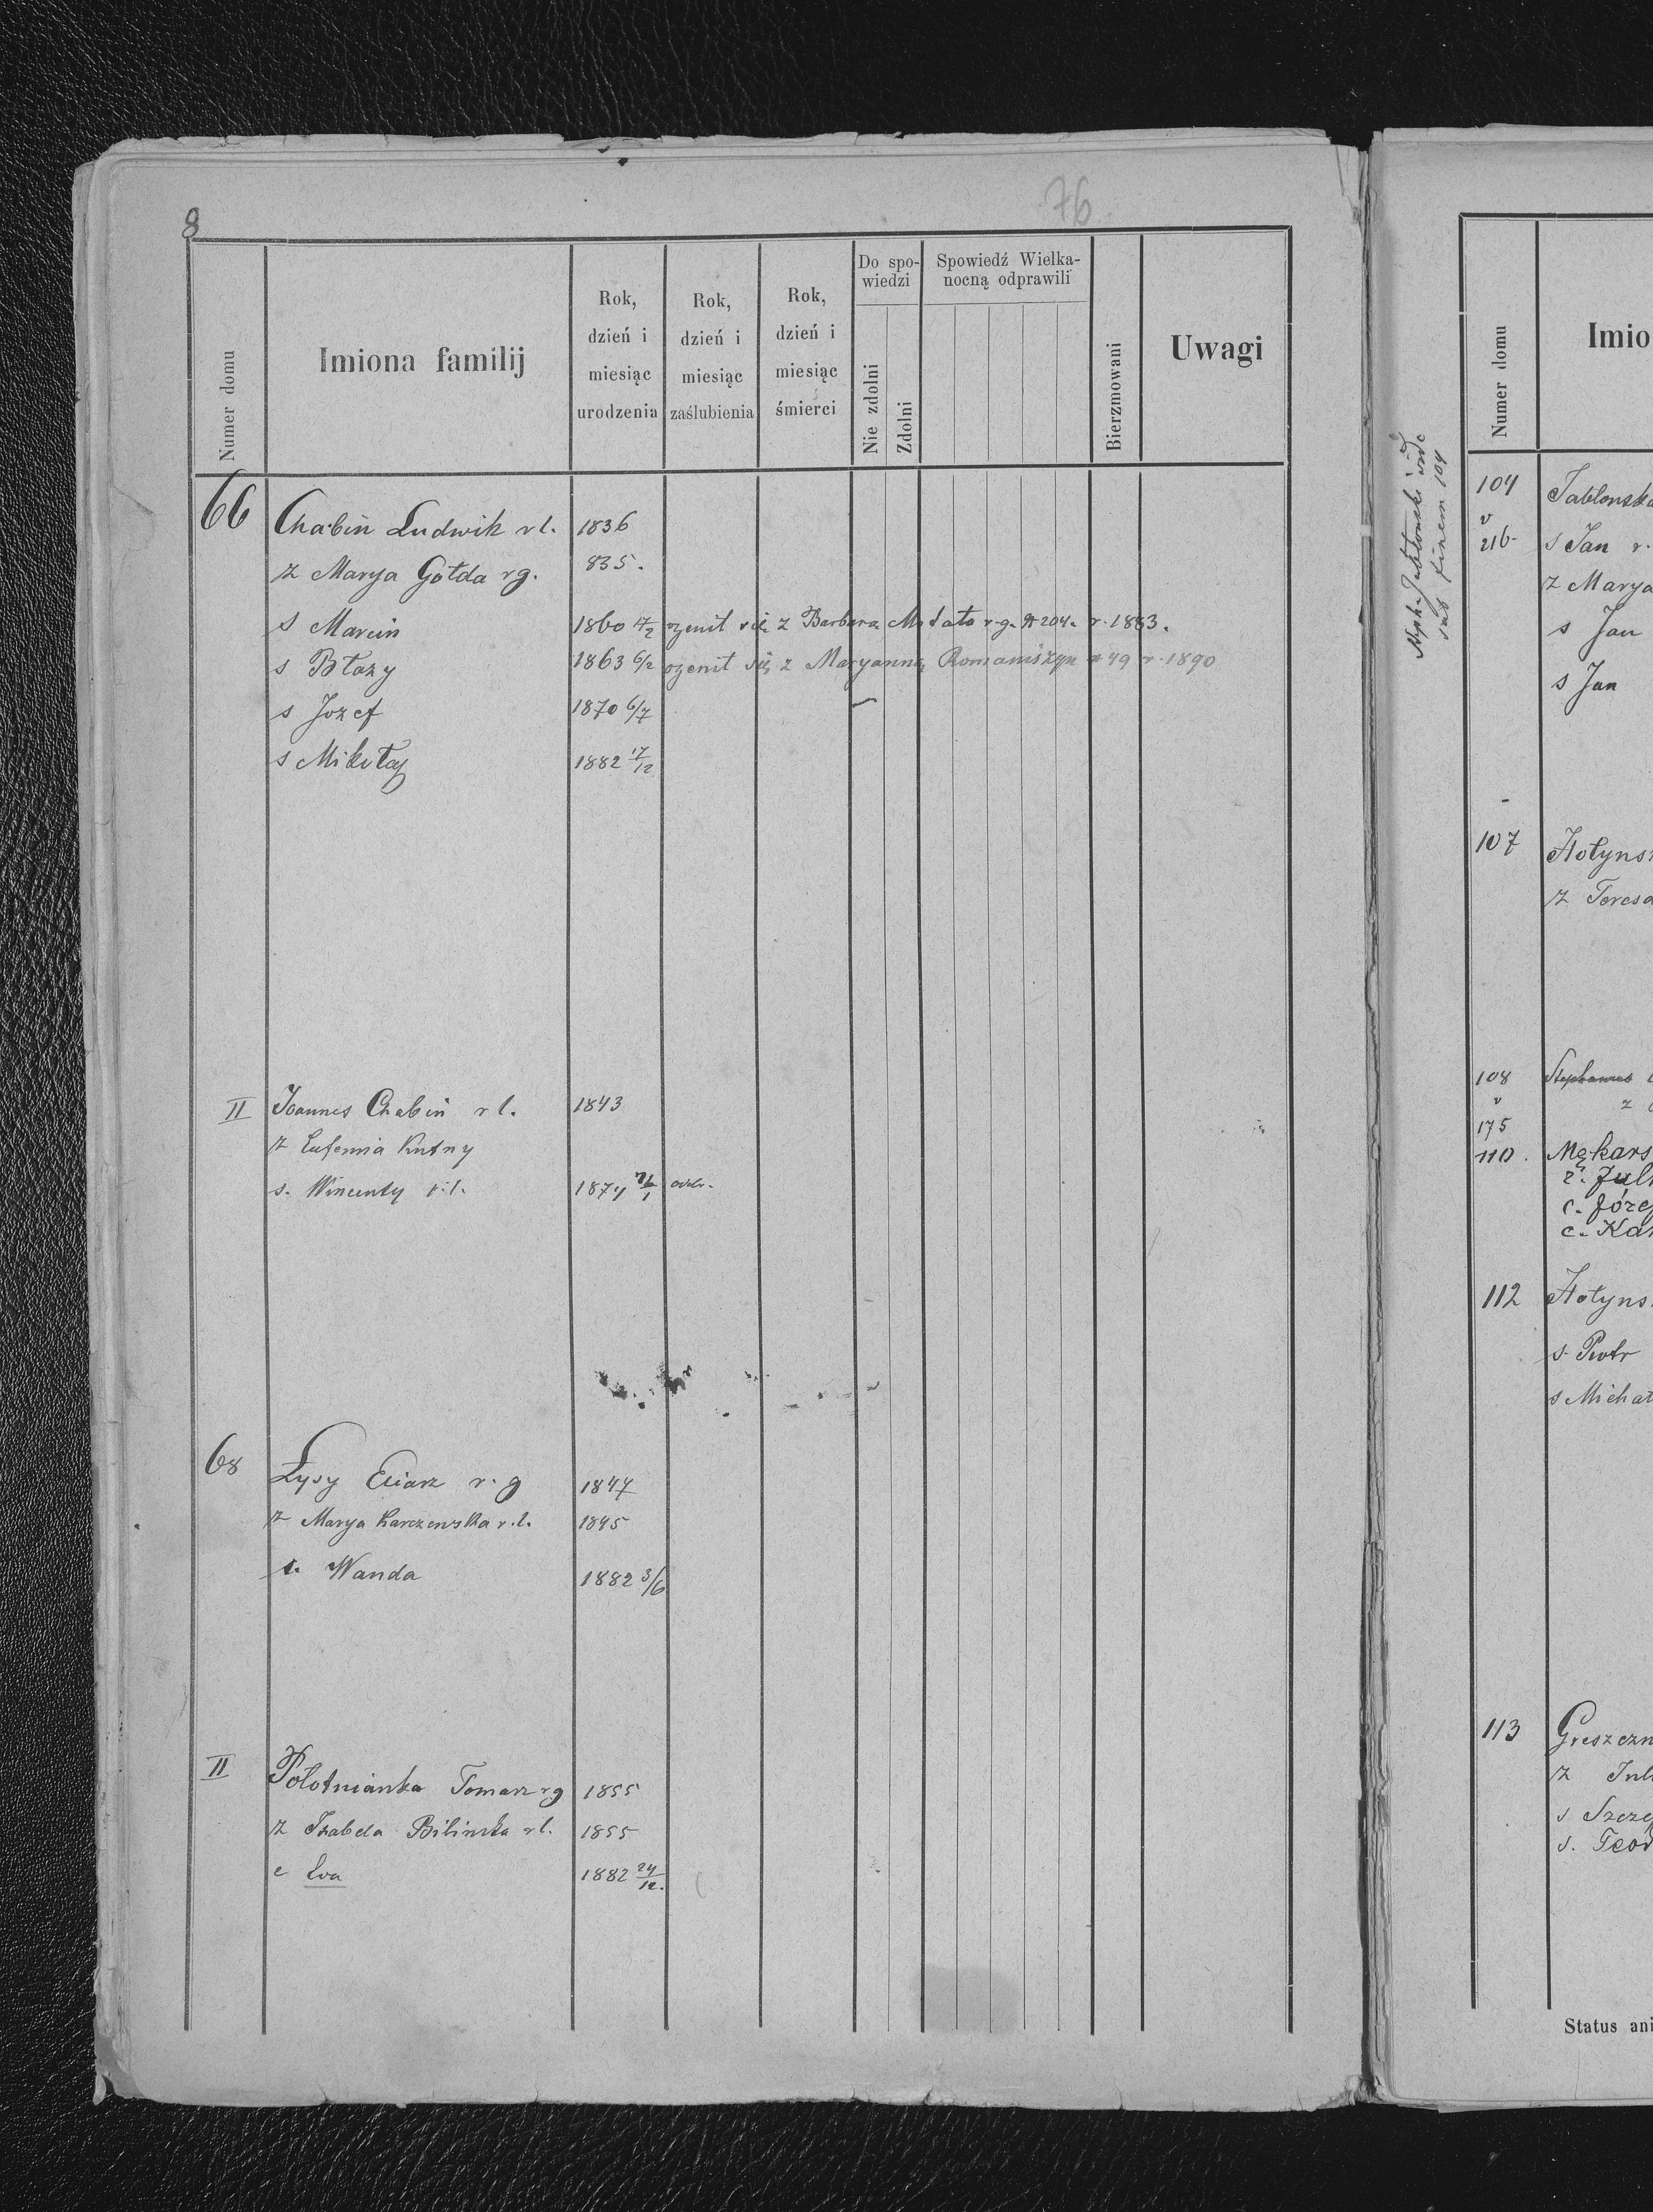 8
76
Numer domu
Imiona familij
Rok, dzień i miesiąc urodzenia
Rok, dzień i miesiąc zaślubienia
Rok, dzień i miesiąc śmierci
Do spo-
wiedzi
Nie zdolni
Zdolni
Spowiedź Wielka-
nocną odprawili
Bierzmowani
Uwagi
66 Chabin Ludwik r l. 1836
z Marya Gołda rg. 835.
s Marcin 1860 ożenił się z Barbara r.g. 204. r. 1883.
s Błazy 1863 6/2 ozenił się z Maryanną Romaniszyn 49 r. 1890
s Jozef 1870 6/7
s Mikołaj 1882 17/12
II Joannes Chabin r l. 1843
z Eufemia Kutny
s. Wincenty r.l. 1874
68 Łysy Eliasz r. g 1847
z Marya Karczewska r.l. 1845
Wanda 1882 3/6
II Połotnianka Tomasz rg 1855
z Izabela Bilinska r l. 1855
c Eva 1882 24/12.
Numer domu
Imio
Jabłonski
sub finem 104
104 Jablonsk
v
216- s Jan r.
z Marya
s Jan
s Jan
107 Hołyns
z Teresa
108 Stephanus
v z
175
110. Mękars
z. Jul
c. Józef
c. Kar
112 Hołyns
s. Piotr
s Michał
113 Greszczn
z Jul
s Szcze
s. Teod
Status ani